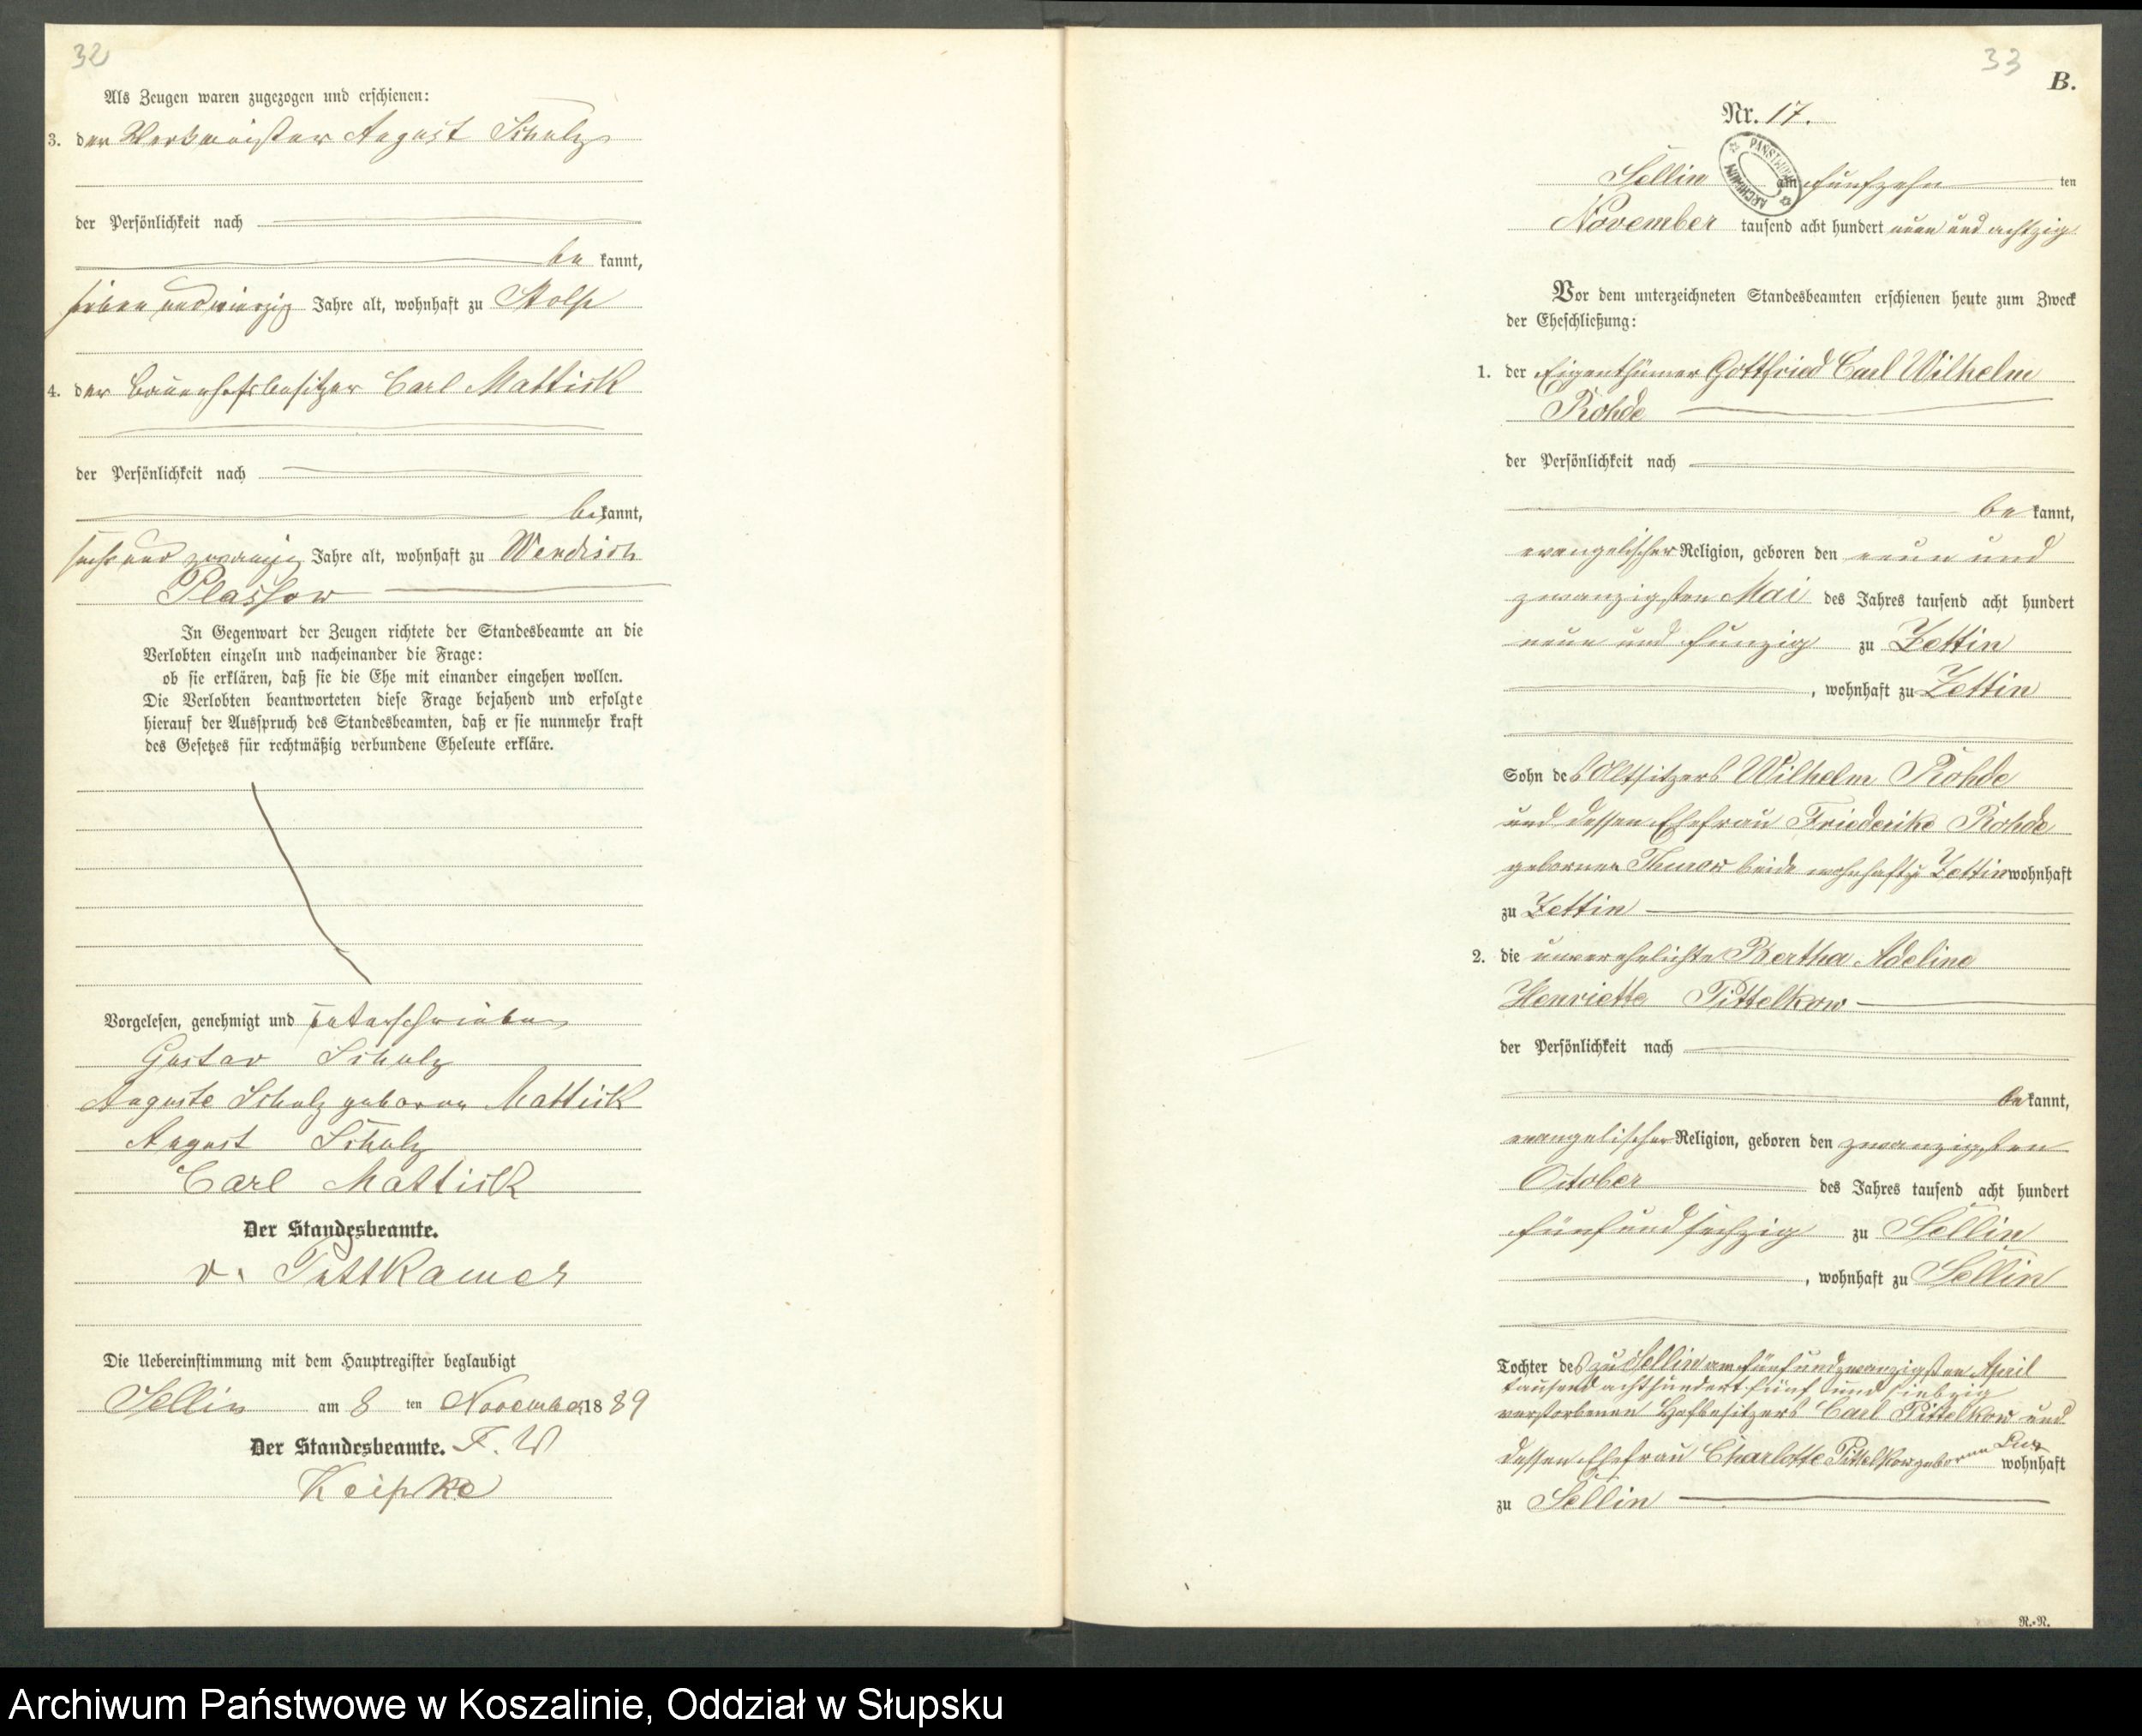 32
Als Zeugen waren zugezogen und erschienen:
3. der Werkmeister August Schulz
der Persönlichkeit nach
be kannt,
sieben und vierzig Jahre alt, wohnhaft zu Stolp
4. der Bauerhofsbesitzer Carl Mattick
der Persönlichkeit nach
bekannt,
sechs und zwanzig Jahre alt, wohnhaft zu Wendisch
Plassow
In Gegenwart der Zeugen richtete der Standesbeamte an die
Verlobten einzeln und nacheinander die Frage:
ob sie erklären, daß sie die Ehe mit einander eingehen wollen.
Die Verlobten beantworteten diese Frage bejahend und erfolgte
hierauf der Ausspruch des Standesbeamten, daß er sie nunmehr kraft
des Gesetzes für rechtmäßig verbundene Eheleute erkläre.
Vorgelesen, genehmigt und unterschrieben
Gustav Schulz
Auguste Schulz geborene Mattick
August Schulz
Carl Mattick
Der Standesbeamte.
v. Puttkamer
Die Uebereinstimmung mit dem Hauptregister beglaubigt
Sellin am 8 ten November 1889
Der Standesbeamte. F. W
Keipke
33
B.
Nr. 17.
Sellin am fünfzehn ten
November tausend acht hundert neun und achtzig
Vor dem unterzeichneten Standesbeamten erschienen heute zum Zweck
der Eheschließung:
1. der Eigenthümer Gottfried Carl Wilhelm
Rohde
der Persönlichkeit nach
be kannt,
evangelischer Religion, geboren den neun und
zwanzigsten Mai des Jahres tausend acht hundert
neun und funzig zu Zettin
, wohnhaft zu Zettin
Sohn des Altsitzers Wilhelm Rohde
und dessen Ehefrau Friederike Rohde
geborner Thurow beide wohnhaft zu Zettin wohnhaft
zu Zettin
2. die unverehelichte Bertha Adeline
Henriette Pittelkow
der Persönlichkeit nach
bekannt,
evangelischer Religion, geboren den zwanzigsten
October des Jahres tausend acht hundert
fünf und sechzig zu Sellin
, wohnhaft zu Sellin
Tochter des zu Sellin am fünf und zwanzigsten April
tausend achthundert fünf und siebzig
verstorbenen Hofbesitzers Carl Pittelkow und
dessen Ehefrau Charlotte Pittelkow geborene wohnhaft
zu Sellin
R.-N.
Archiwum Państwowe w Koszalinie, Oddział w Słupsku